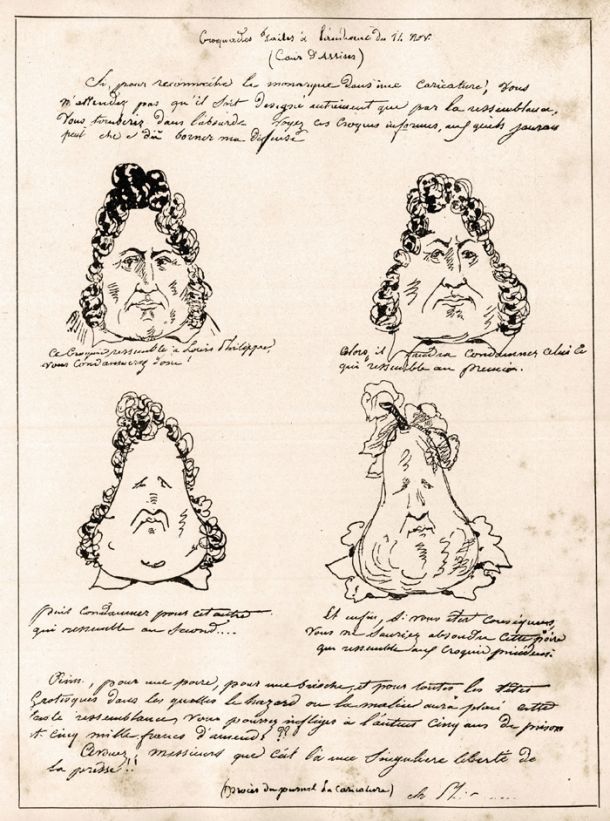 Croquades faites à l'audience du 14 Nov.
(Cour d'Assises)
Si, pour reconnoître le monarque dans une caricature, vous
n'attendez pas qu'il soit designé autrement que par la ressemblance,
vous tomberez dans l'absurde. Voyez ces croquis informes, auxquels j'aurais
peut être dû borner ma défense
Ce Croquis ressemble à Louis Philippe,
vous condamnerez donc!
Alors il faudra Condamner Celui Ce
qui ressemble au premier.
puis condamner pour cet autre
qui ressemble au Second....
Et enfin, si vous êtes conséquens,
Vous ne sauriez absoudre cette poire
qui ressemble aux Croquis précédens.
Ainsi, pour une poire, pour une brioche, et pour toutes les têtes
grotesques dans les quelles le hazard ou la malice aura placé cette
triste ressemblance, Vous pourrez infliger à l'auteur Cinq ans de prison
et Cinq mille francs d'amende!?
Avouez, messieurs que C'est là une Singulière liberté de
la presse!!
(procès du journal La Caricature)
Ch